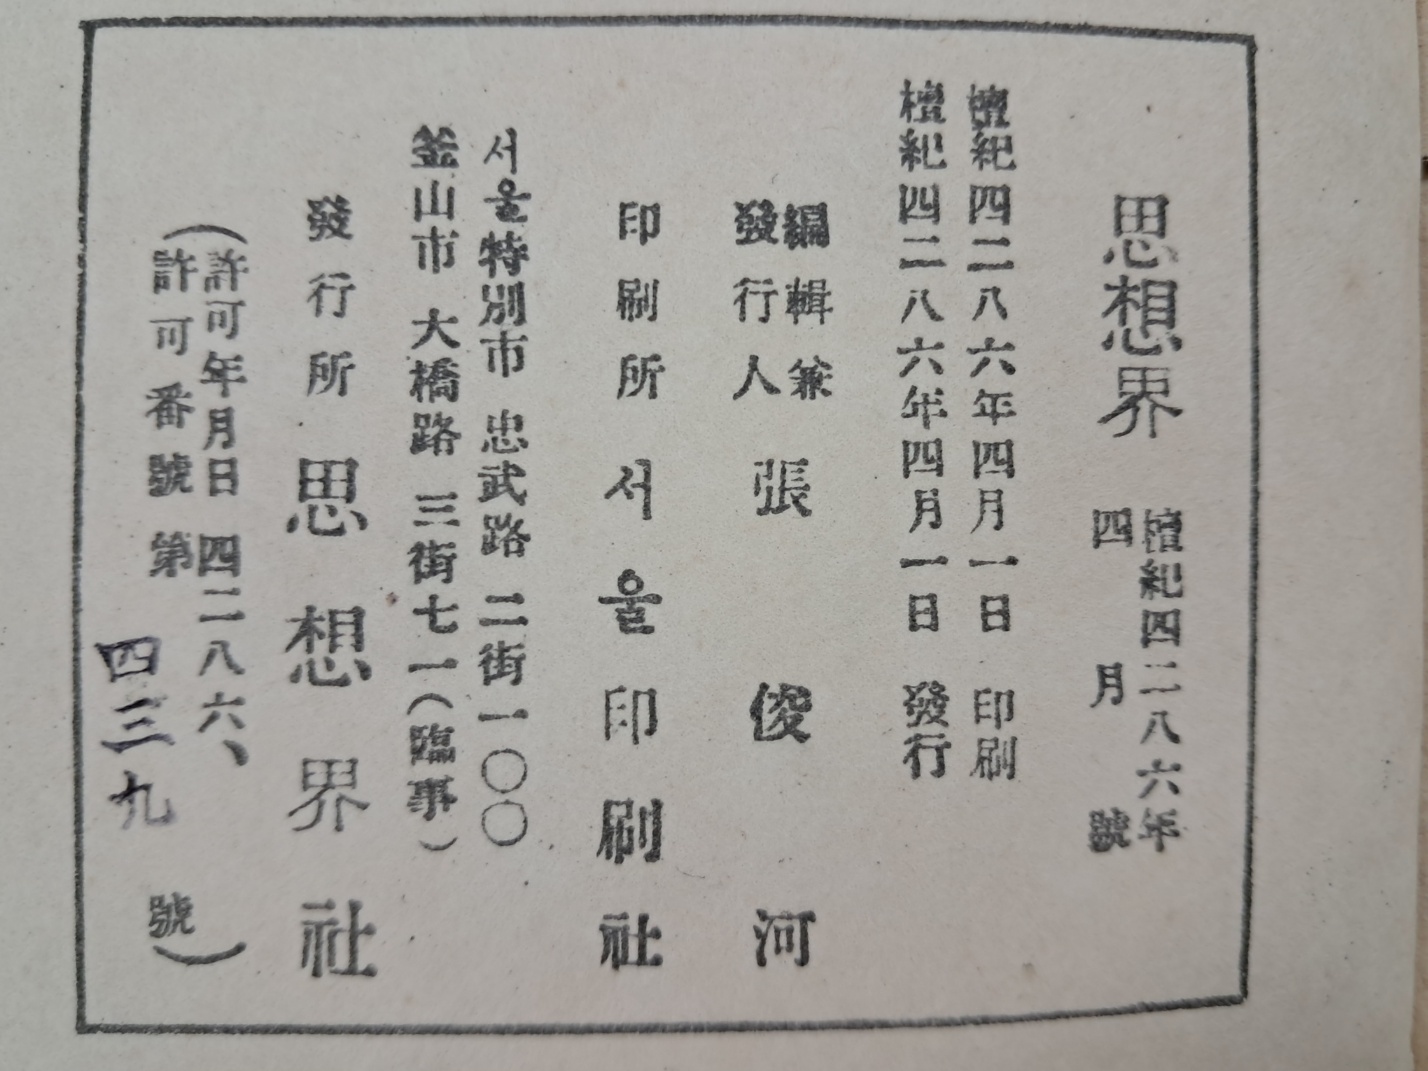 思想界
檀紀四二八六年
四月號
檀紀四二八六年四月一日 印刷
檀紀四二八六年四月一日 發行
編輯兼
發行人
張俊河
印刷所 서울印刷社
서울特別市 忠武路 二街一〇〇
釜山市 大橋路 三街七一(臨事)
發行所 思想界社
(許可年月日 四二八六、
許可番號 第四三九號)